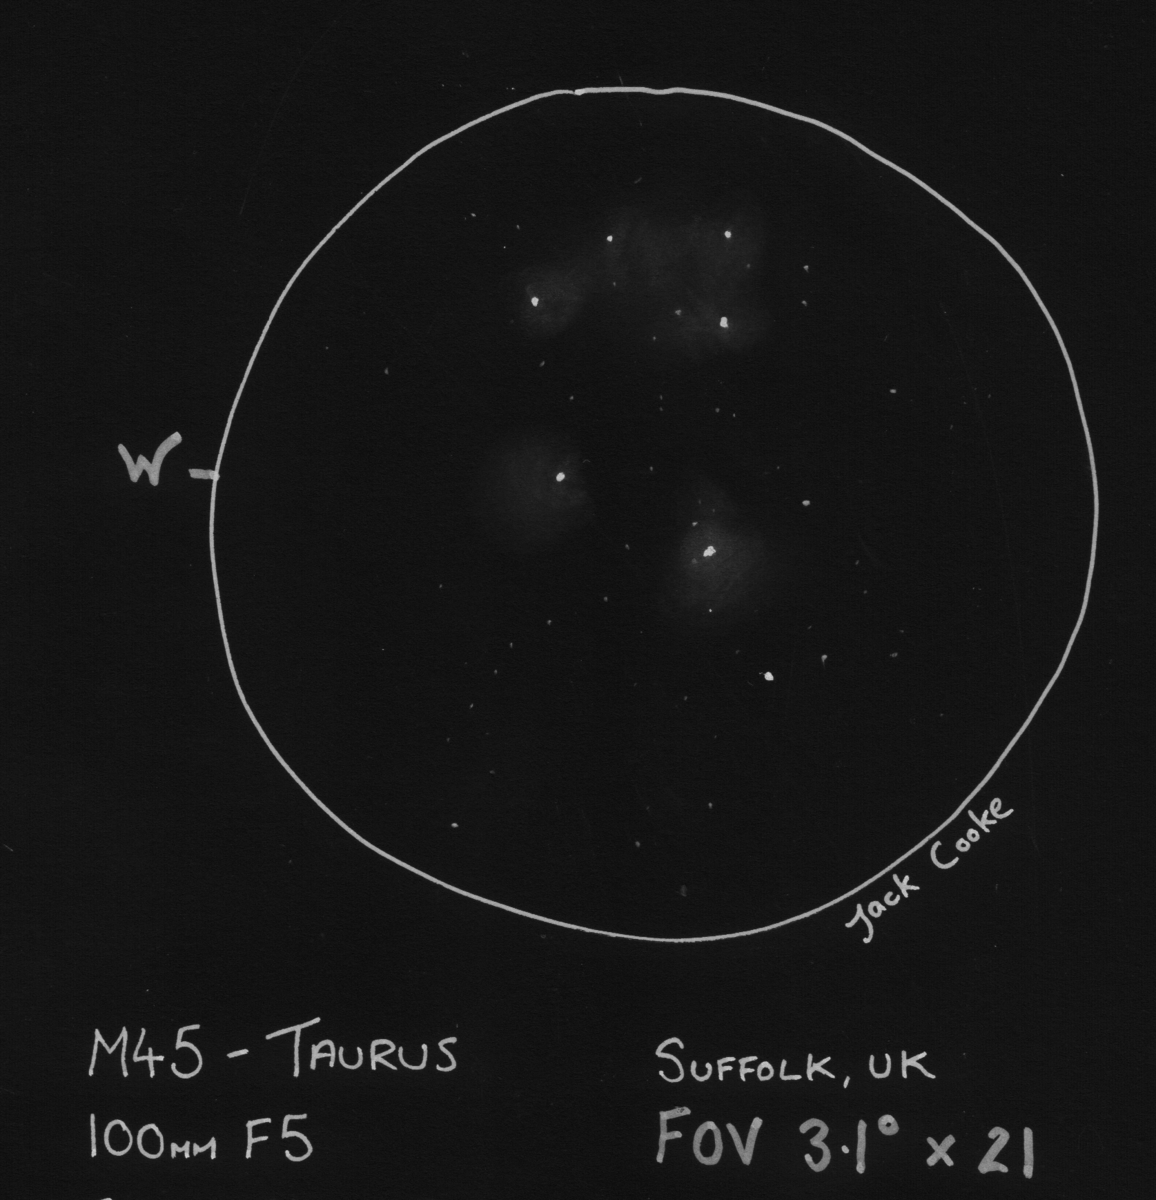 W
Jack Cooke
M45 - TAURUS
100MM F5
SUFFOLK, UK
FOV 3.1° x 21